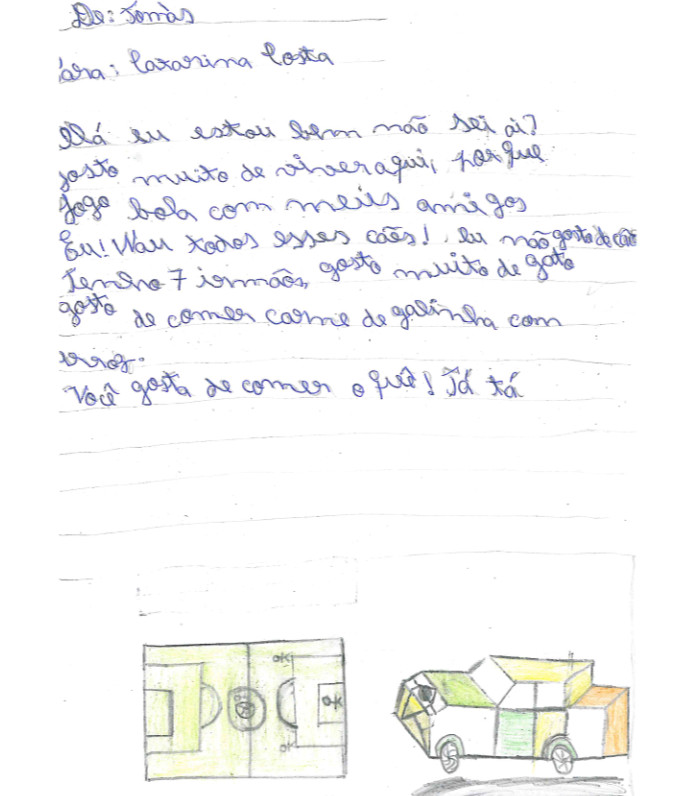 De: Tomàs
Para: Catarina Costa
Olá eu estou bem não sei ai?
gosto muito de viver aqui, porque
jogo bola com meus amigos
Eu! Wau todos esses cães! Eu não gosto de cão
Tenho 7 irmãos, gosto muito de gato
gosto de comer carne de galinha com
arroz.
Você gosta de comer o quê! Já tá
OK
OK
OK